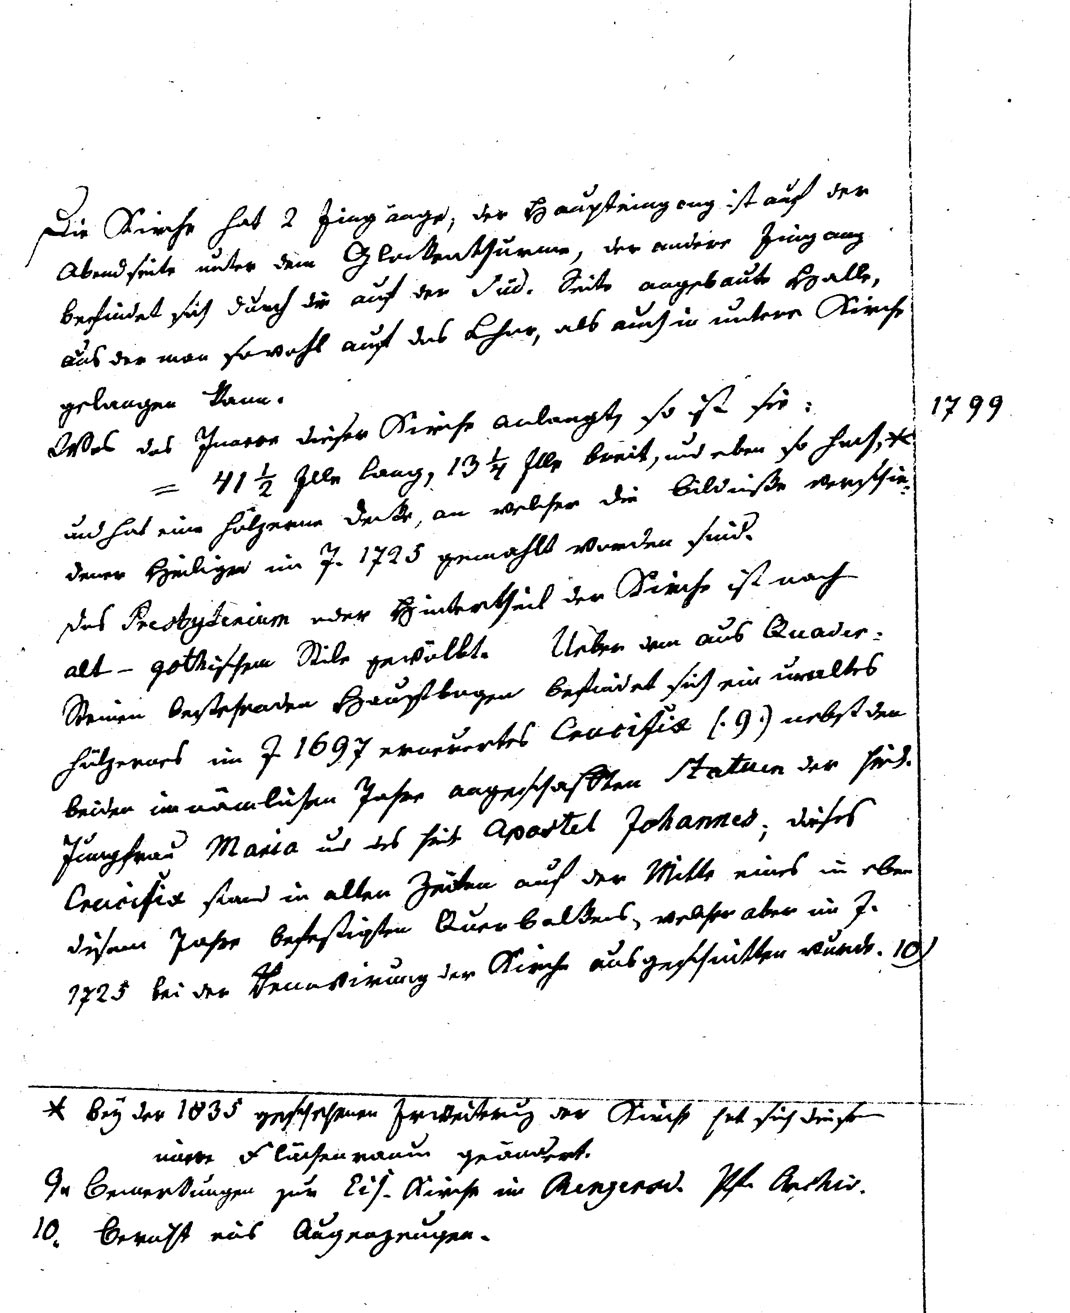 Die Kirche hat 2 Eingänge, der Haupteingang ist auf der
Abendseite unter dem Glockenthurme, der andere Eingang
befindet sich durch die auf der Süd. Seite angebaute Halle,
aus der man sowohl auf das Chor, als auch in untere Kirche
gelangen kann.
Was das Innere dieser Kirche anlangt, so ist sie:
1799
= 41 1/2 Elle lang, 13 1/4 Elle breit, und eben so hoch, *
und hat eine hölzerne Decke, an welcher die Bildniße verschie-
dener Heiligen im J. 1725 gemahlt worden sind.
Das Presbyterium oder Hintertheil der Kirche ist nach
alt-gothischem Stile gewölbt. Ueber dem aus Quader-
Steinen bestehenden Hauptbogen befindet sich ein uraltes
hölzernes im J 1697 erneuertes Crucifix (. 9.) nebst den
beiden im nämlichen Jahre angeschafften Statuen der
Jungfrau Maria und des Apostel Johannes; dieses
Crucifix stand in alten Zeiten auf der Mitte eines in eben
diesem Jahre befestigten Querbalkens, welcher aber im J.
1725 bei der Renovirung der Kirche ausgeschnitten wurde. 10)
* Bey der 1835 geschehenen Erweiterung der Kirche hat sich dieser
innere Flächenraum geändert.
9. Bemerkungen zur Kirche im Pf. Archiv.
10. Bericht eines Augenzeugen.